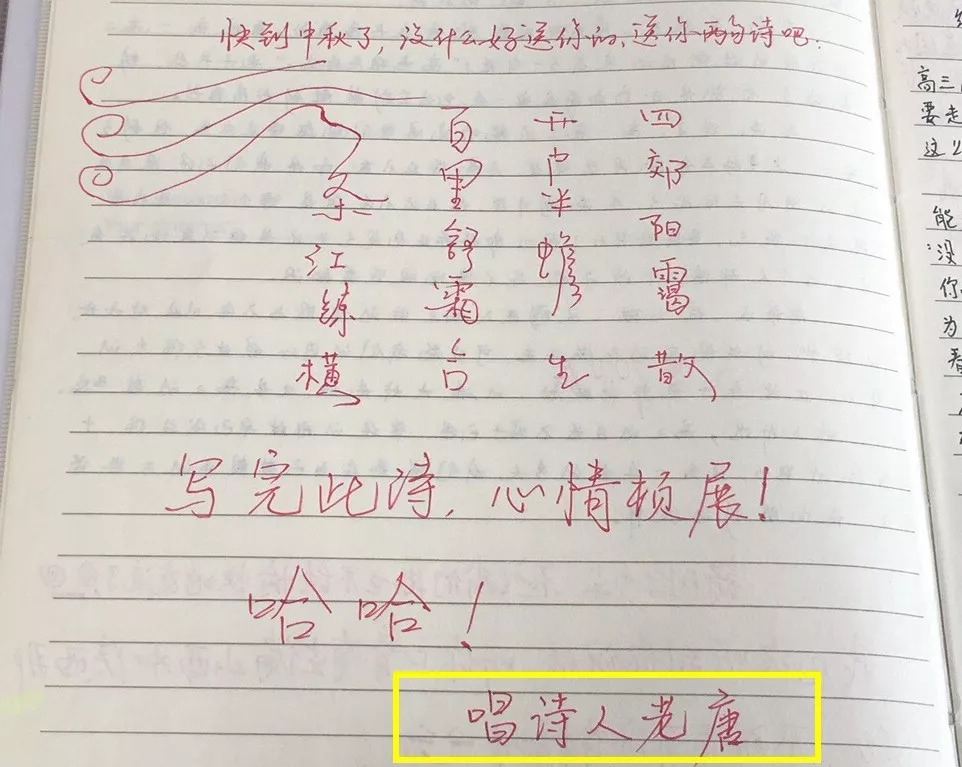 快到中秋了,没什么好送你的,送你两句诗吧.
四郊阳霭散
开户半蟾生
百里舒霜合
条江练横
写完此诗,心情顿展!
哈哈!
唱诗人老唐
高三
要走
这么
能
没
你
为
看